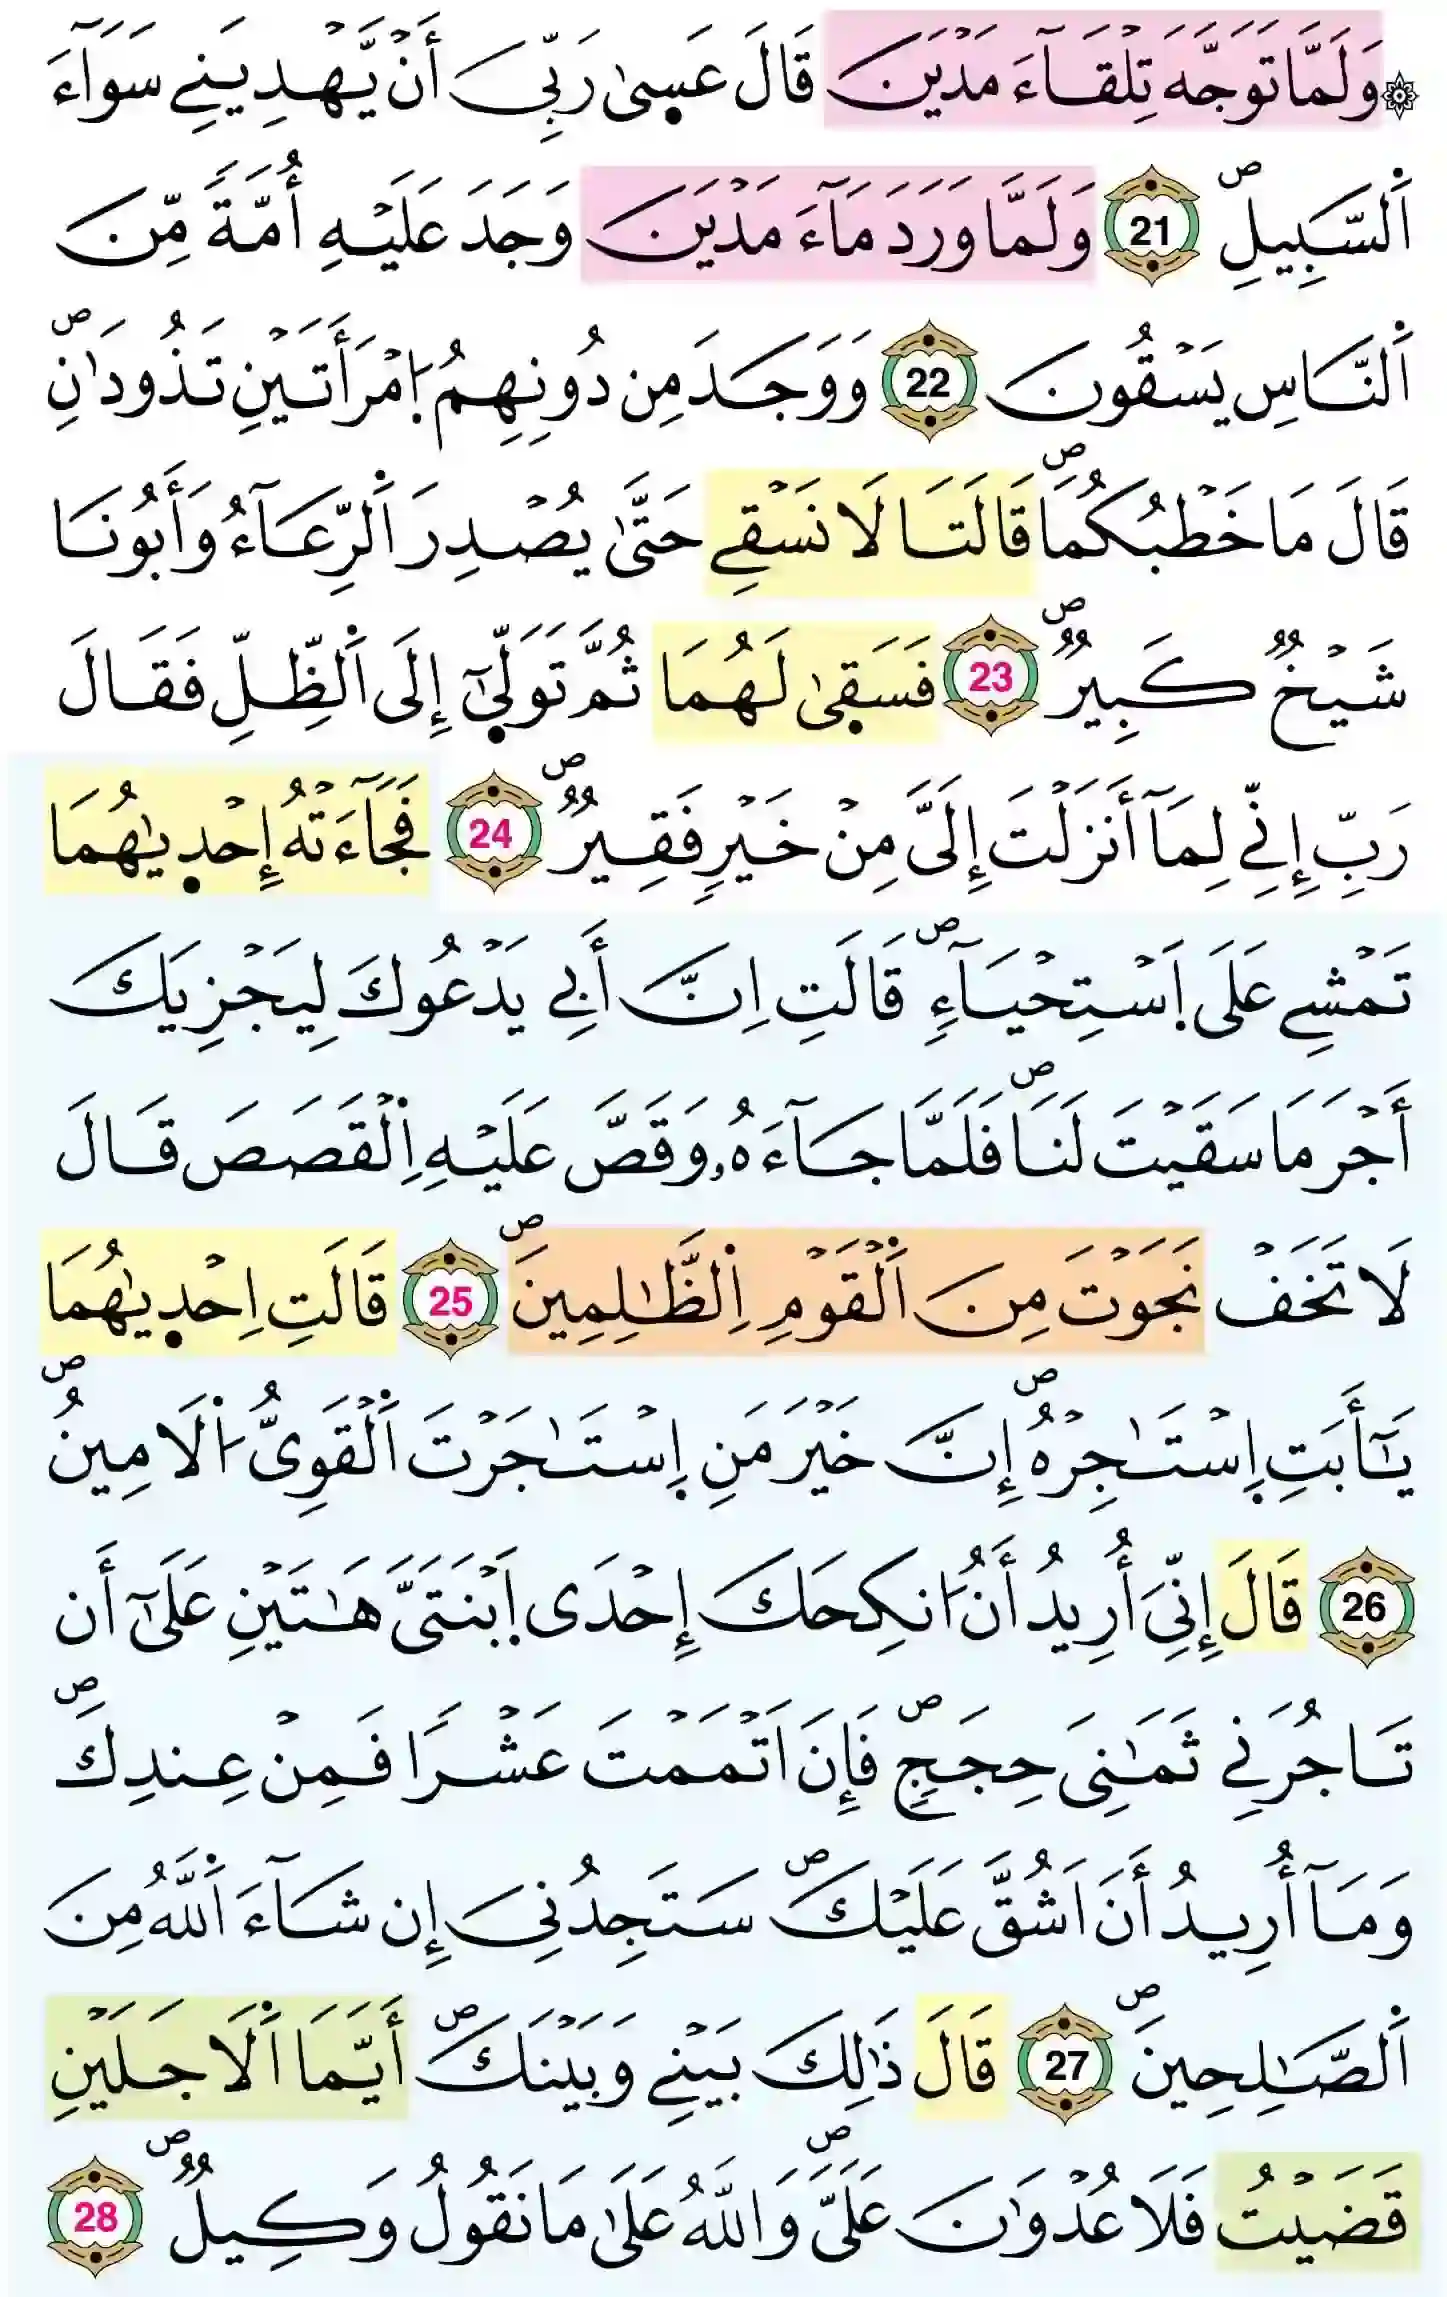 ۞وَلَمَّا تَوَجَّهَ تِلْقَآءَ مَدْيَنَ قَالَ عَسۭىٰ رَبِّىَ أَنْ يَّهْدِيَنِے سَوَآءَ
اَ۬لسَّبِيلِۖ 21 وَلَمَّا وَرَدَ مَآءَ مَدْيَنَ وَجَدَ عَلَيْهِ أُمَّةٗ مِّنَ
اَ۬لنَّاسِ يَسْقُونَ 22 وَوَجَدَ مِن دُونِهِمُ اُ۪مْرَأَتَيْنِ تَذُودَٰنِۖ
قَالَ مَا خَطْبُكُمَاۖ قَالَتَا لَا نَسْقِے حَتَّىٰ يُصْدِرَ اَ۬لرِّعَآءُ وَأَبُونَا
شَيْخٞ كَبِيرٞۖ 23 فَسَقۭىٰ لَهُمَا ثُمَّ تَوَلّۭىٰٓ إِلَى اَ۬لظِّلِّ فَقَالَ
رَبِّ إِنِّے لِمَآ أَنزَلْتَ إِلَىَّ مِنْ خَيْرٖ فَقِيرٞۖ 24 فَجَآءَتْهُ إِحْدۭيٰهُمَا
تَمْشِے عَلَى اَ۪سْتِحْيَآءٖۖ قَالَتِ اِنَّ أَبِے يَدْعُوكَ لِيَجْزِيَكَ
أَجْرَ مَا سَقَيْتَ لَنَاۖ فَلَمَّا جَآءَهُۥ وَقَصَّ عَلَيْهِ اِ۬لْقَصَصَ قَالَ
لَا تَخَفْ نَجَوْتَ مِنَ اَ۬لْقَوْمِ اِ۬لظَّٰلِمِينَۖ 25 قَالَتِ اِحْدۭيٰهُمَا
يَٰٓأَبَتِ اِ۪سْتَٰجِرْهُۖ إِنَّ خَيْرَ مَنِ اِ۪سْتَٰجَرْتَ اَ۬لْقَوِىُّ اُ۬لَامِينُۖ
26 قَالَ إِنِّىَ أُرِيدُ أَنُ ا۟نكِحَكَ إِحْدَى اَ۪بْنَتَىَّ هَٰتَيْنِ عَلَىٰٓ أَن
تَاجُرَنِے ثَمَٰنِىَ حِجَجٖۖ فَإِنَ اَتْمَمْتَ عَشْراٗ فَمِنْ عِندِكَۖ
وَمَآ أُرِيدُ أَنَ اَشُقَّ عَلَيْكَۖ سَتَجِدُنِىَ إِن شَآءَ اَ۬للَّهُ مِنَ
اَ۬لصَّٰلِحِينَۖ 27 قَالَ ذَٰلِكَ بَيْنِے وَبَيْنَكَۖ أَيَّمَا اَ۬لَاجَلَيْنِ
قَضَيْتُ فَلَا عُدْوَٰنَ عَلَىَّۖ وَاللَّهُ عَلَىٰ مَا نَقُولُ وَكِيلٞۖ 28